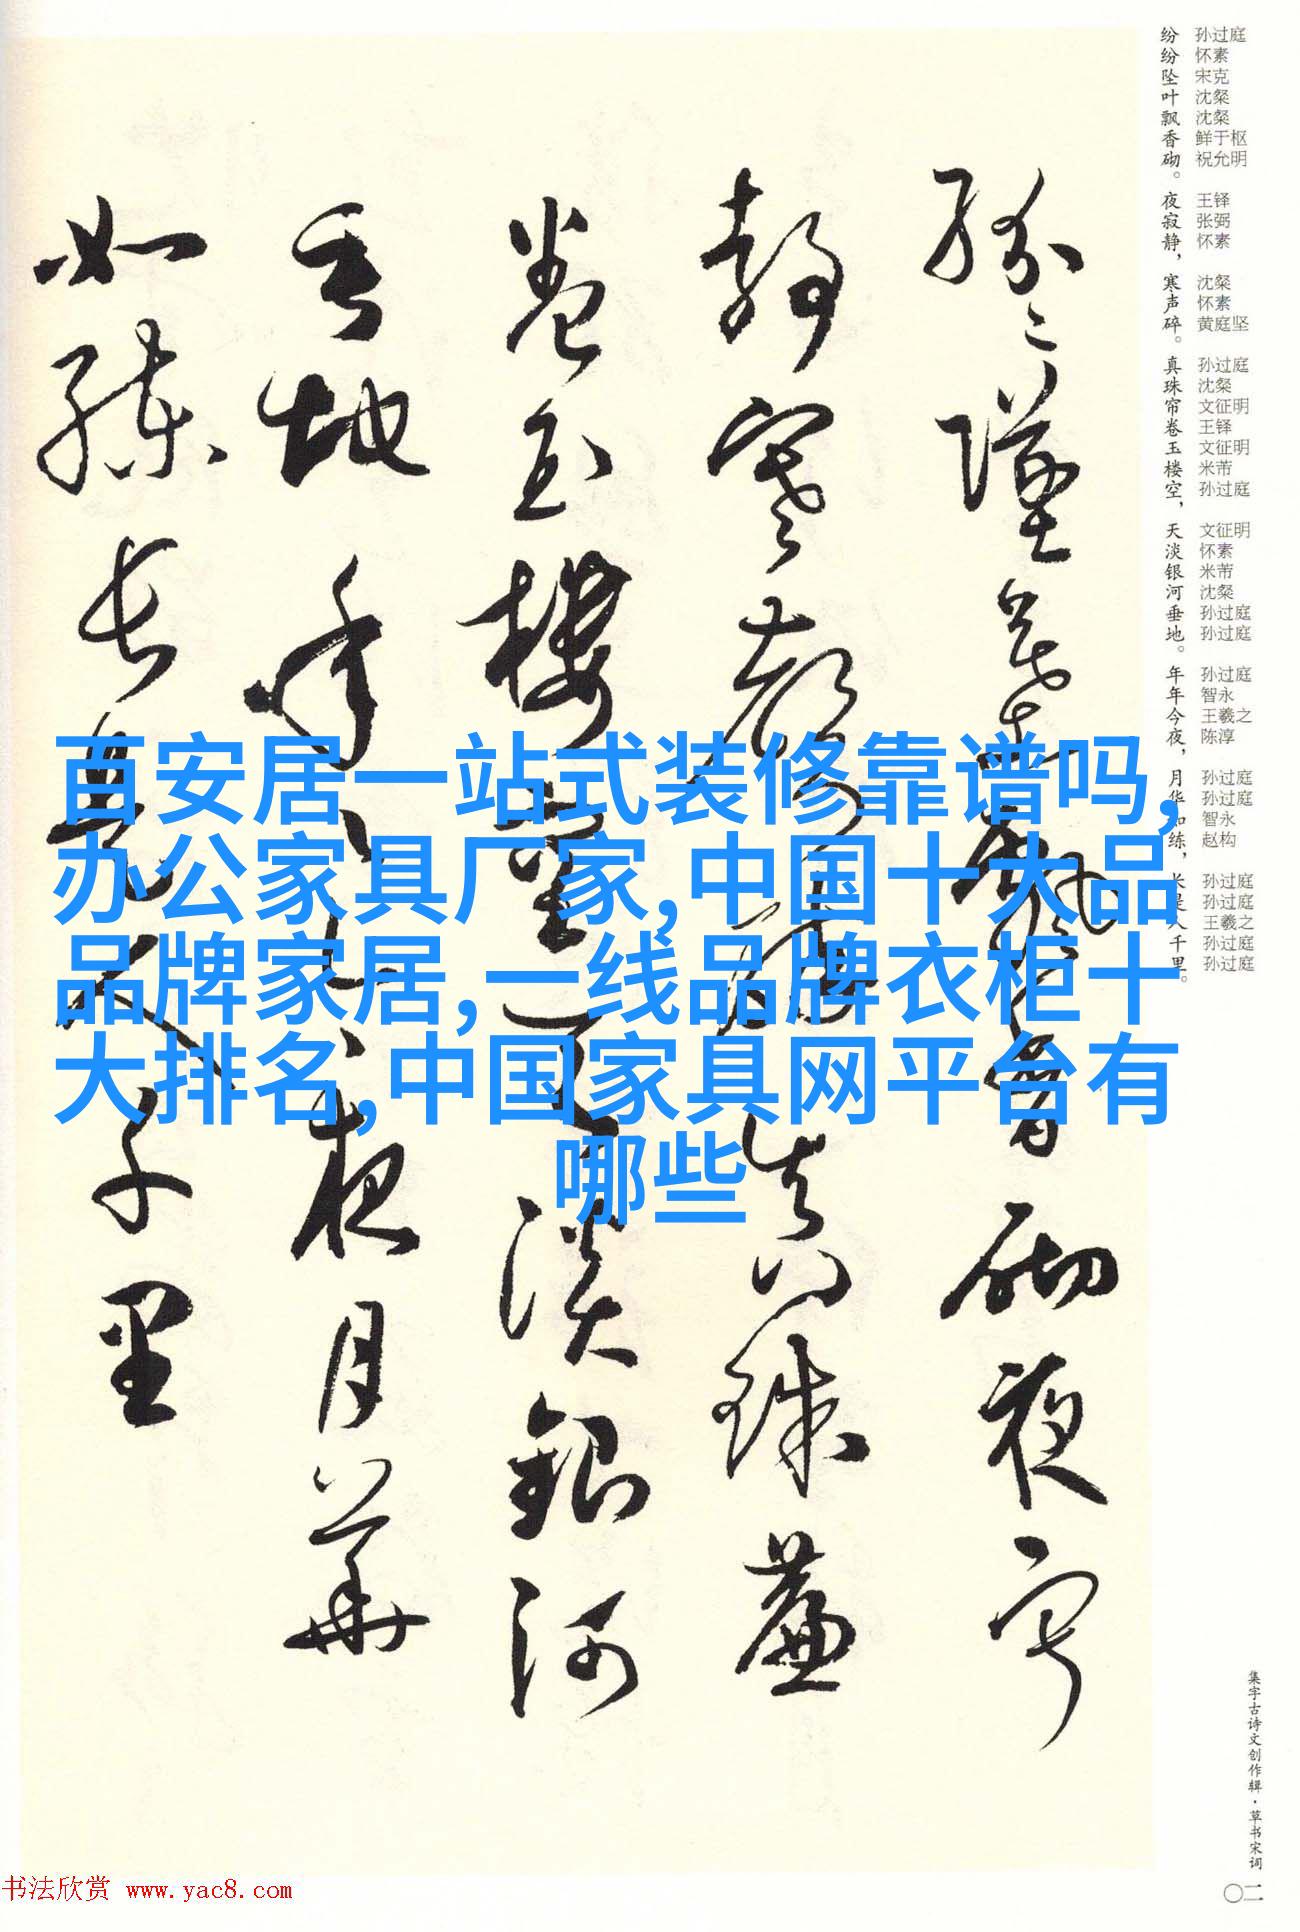 百安居一站式装修靠谱吗,
办公家具厂家,中国十大品
品牌家居,一线品牌衣柜十
大排名,中国家具网平台有
哪些
纷纷坠叶飘香砌。夜寂静，寒声碎。真珠帘卷玉楼空，天淡银河垂地。年年今夜，月华如练，长是人千里。
孙过庭 怀素 宋克 沈粲 沈粲 鲜于枢 祝允明 王铎 张弼 怀素 沈粲 怀素 黄庭坚 孙过庭 沈粲 文征明 王铎 文征明 米芾 孙过庭 文征明 怀素 米芾 沈粲 孙过庭 孙过庭 孙过庭 智永 王羲之 陈淳 孙过庭 孙过庭 智永 赵构 孙过庭 孙过庭 王羲之 孙过庭 孙过庭
纷纷坠叶飘香砌夜寂
静寒声碎真珠帘
卷玉楼空天淡银河
垂地年年今夜月华
如练长是人千里
集字古诗文创作辑·草书宋词
〇二
书法欣赏 www.yac8.com